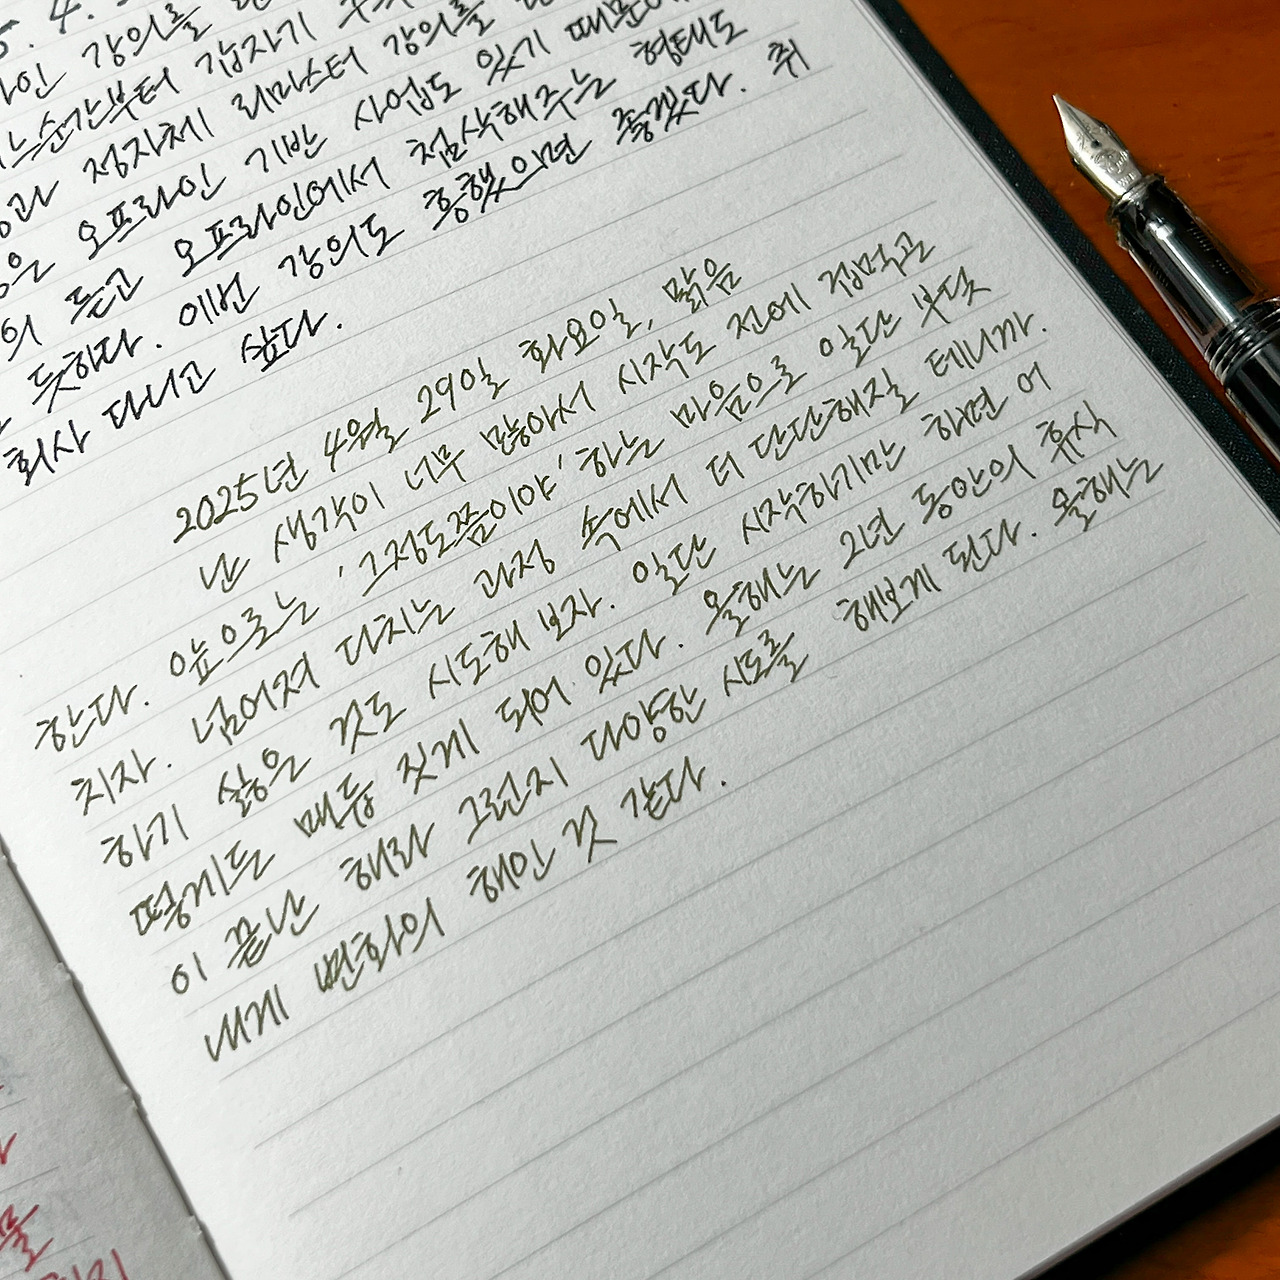 5. 4.
인 강의를
순간부터 갑자기
정자체 리마스터 강의를
은 오프라인 기반 사업도 있기 때문에
의 듣고 오프라인에서 첨삭해주는 형태도
듯하다. 이번 강의도 흥했으면 좋겠다. 취
회사 다니고 싶다.
2025년 4월 29일 화요일, 맑음
난 생각이 너무 많아서 시작도 전에 겁먹곤
한다. 앞으로는 '그정도쯤이야' 하는 마음으로 일단 부딪
치자. 넘어져 다치는 과정 속에서 더 단단해질 테니까.
하기 싫은 것도 시도해 보자. 일단 시작하기만 하면 어
떻게든 매듭 짓게 되어 있다. 올해는 2년 동안의 휴식
이 끝난 해라 그런지 다양한 시도를 해보게 된다. 올해는
내게 변화의 해인 것 같다.